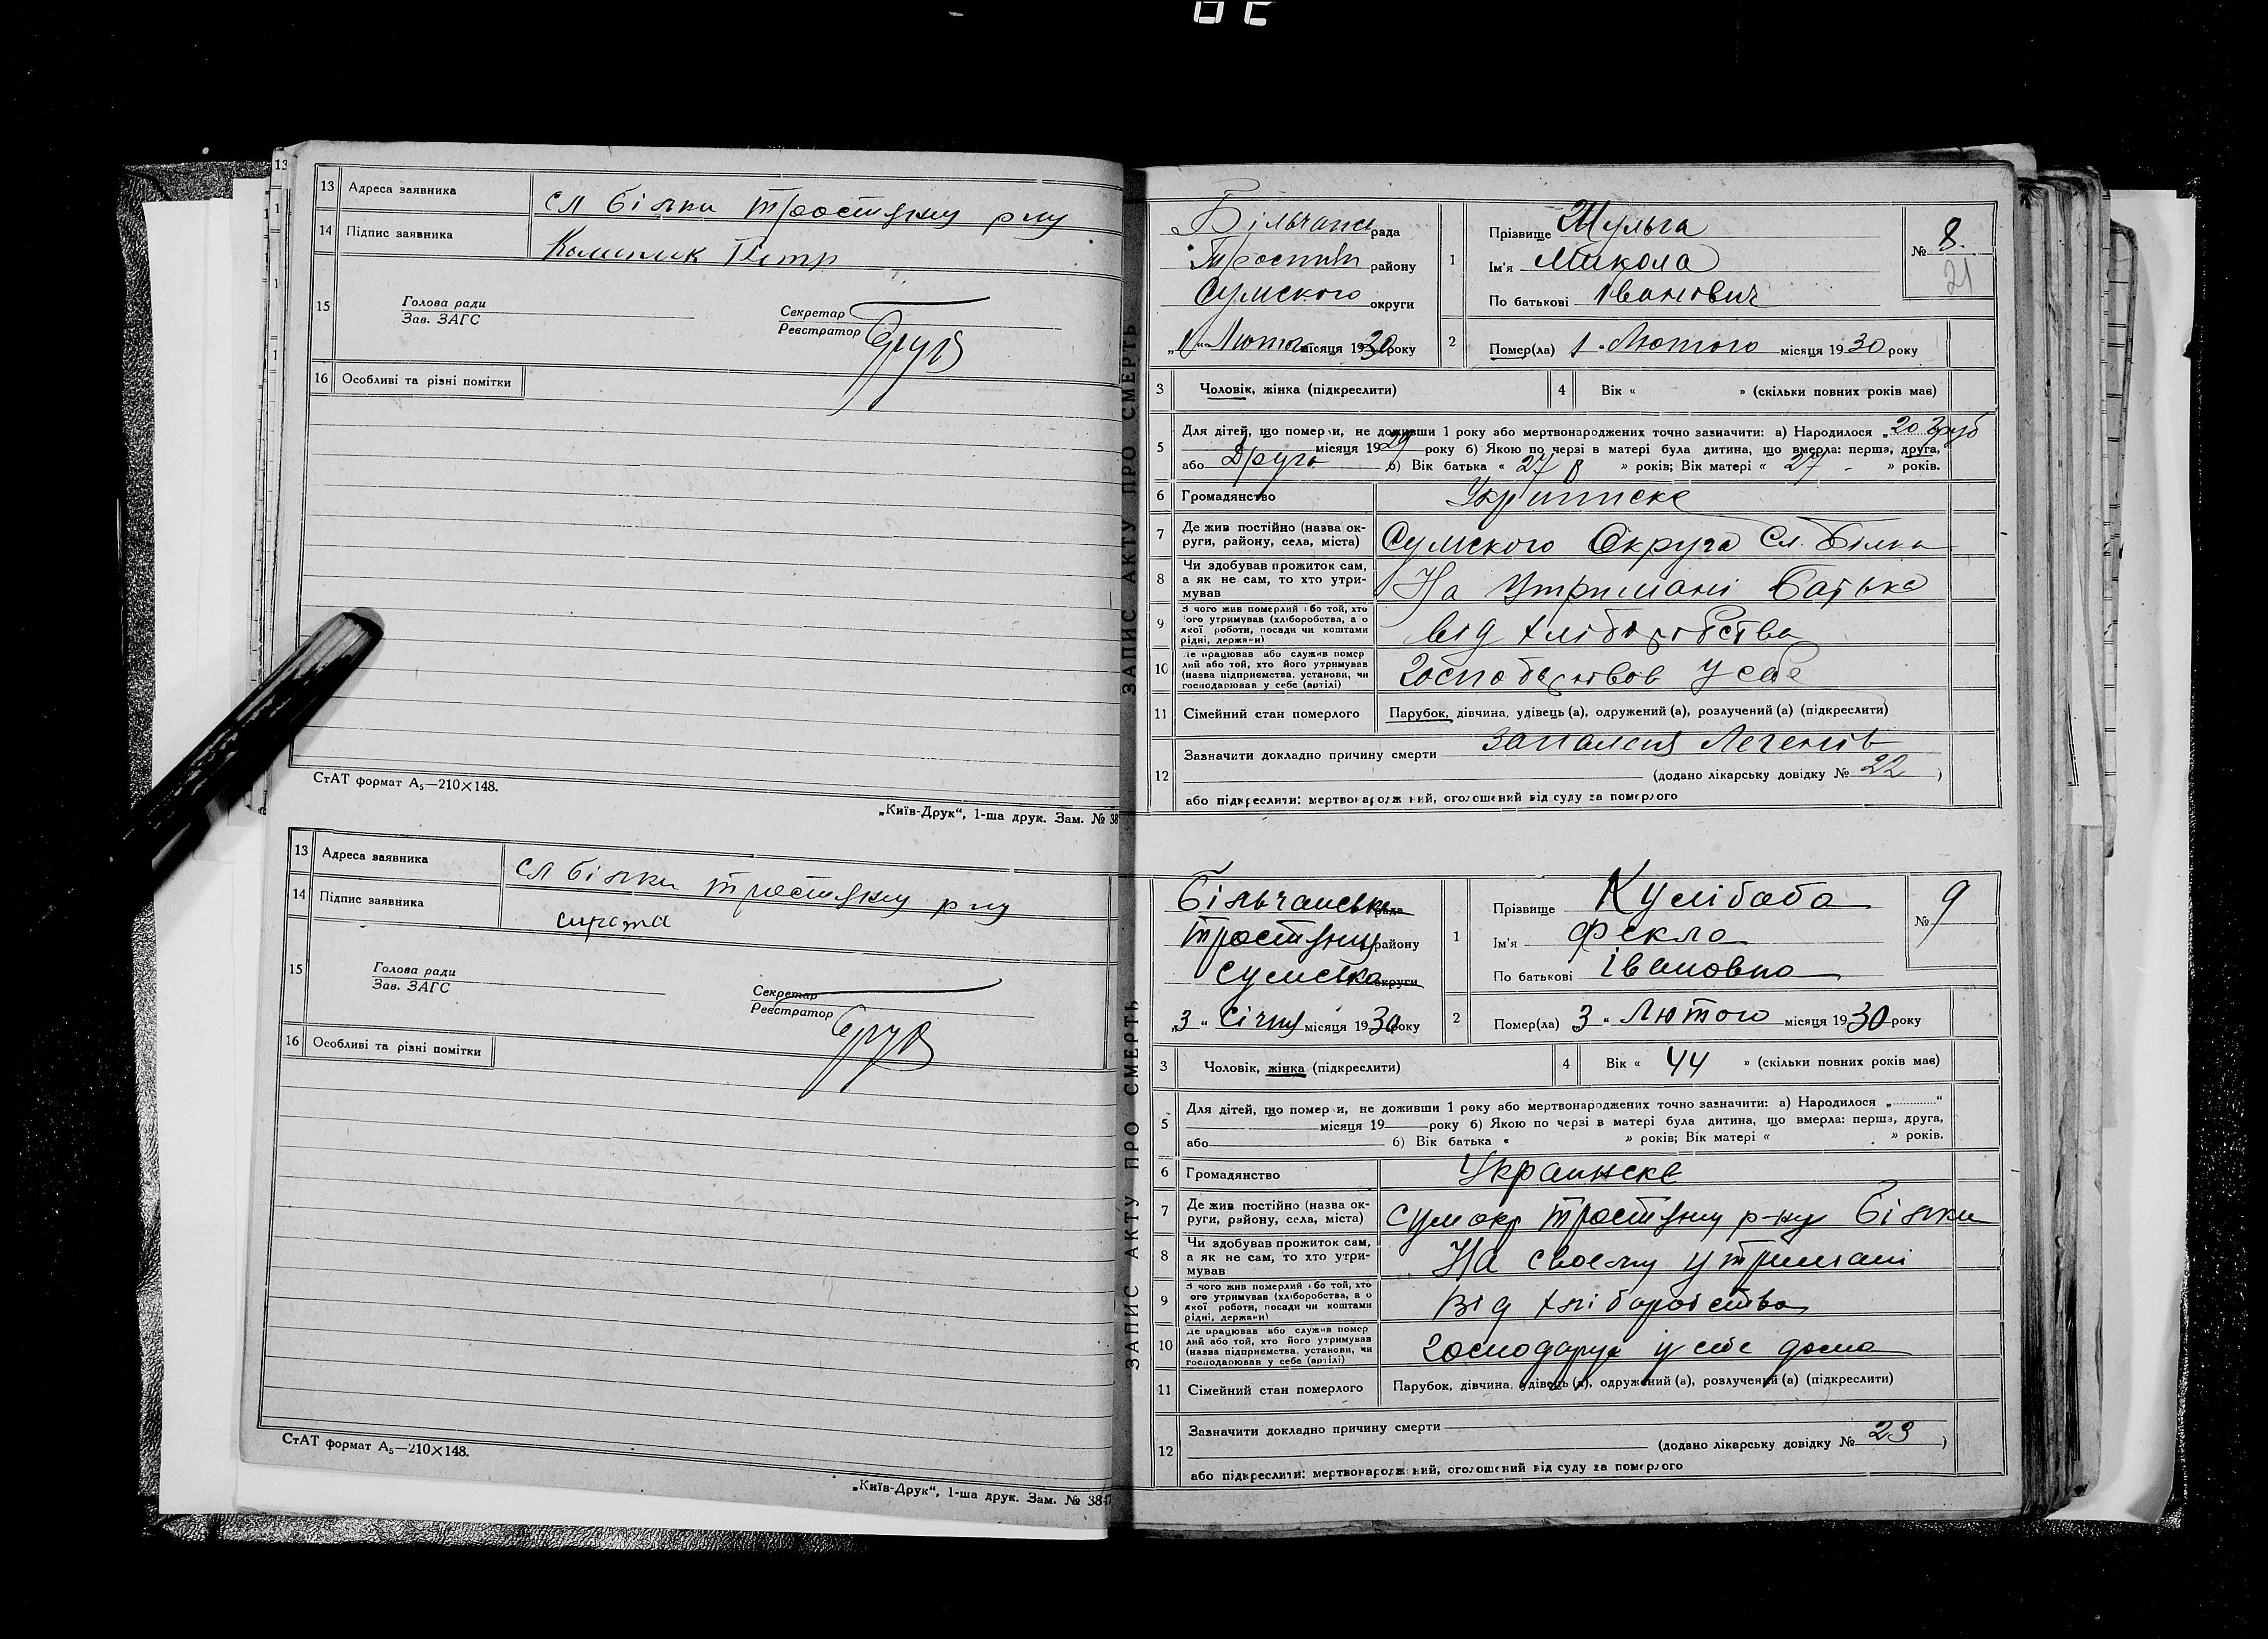 13 Адреса заявника сл Білки Тростянку р ну
14 Підпис заявника Петр
15 Голова ради
Зав. ЗАГС
Секретар
Реєстратор
16 Особливі та різні помітки
СтАТ формат А₅—210×148.
„Київ-Друк“, 1-ша друк. Зам. № 38
13 Адреса заявника сл Білки Тростянку р ну
14 Підпис заявника сирота
15 Голова ради
Зав. ЗАГС
Секретар
Реєстратор
16 Особливі та різні помітки
СтАТ формат А₅—210×148.
„Київ-Друк“, 1-ша друк. Зам. № 3817
ЗАПИС АКТУ ПРО СМЕРТЬ
Більчанск рада
Тростян району
Сумского округи
„1“ Лютого місяця 1930 року
1 Прізвище Шульга
Ім'я Микола
По батькові Іванович
№ 8.
21
2 Помер(ла) 1 „ Лютого місяця 1930 року
3 Чоловік, жінка (підкреслити)
4 Вік « » (скільки повних років має)
5 Для дітей, що померли, не доживши 1 року або мертвонароджених точно зазначити: а) Народилося „20 Груд
місяця 1929 року б) Якою по черзі в матері була дитина, що вмерла: перша, друга,
або Друга в) Вік батька « 27 р » років; Вік матері « 27 - » років.
6 Громадянство
7 Де жив постійно (назва округи, району, села, міста) Сумского Округа Сл. Білка
8 Чи здобував прожиток сам, а як не сам, то хто утримував На Утримані Батька
9 З чого жив померлий або той, хто його утримував (хліборобства, або якої роботи, посади чи коштами рідні, держави) від хліборобства
10 Де працював або служив померлий або той, хто його утримував (назва підприємства, установи, чи господарював у себе (артілі) у себе
11 Сімейний стан померлого Парубок, дівчина, удівець (а), одружений (а), розлучений (а) (підкреслити)
12 Зазначити докладно причину смерти Запалення Легенів
(додано лікарську довідку № 22 )
або підкреслити: мертвонароджений, оголошений від суду за померлого
ЗАПИС АКТУ ПРО СМЕРТЬ
Більчанська рада
Тростянку району
Сумська округи
„3“ Січня місяця 1930 року
1 Прізвище Кулібаба
Ім'я Фекла
По батькові Івановна
№ 9
2 Помер(ла) 3 „ Лютого місяця 1930 року
3 Чоловік, жінка (підкреслити)
4 Вік « 44 » (скільки повних років має)
5 Для дітей, що померли, не доживши 1 року або мертвонароджених точно зазначити: а) Народилося „ “
місяця 19 року б) Якою по черзі в матері була дитина, що вмерла: перша, друга,
або в) Вік батька « » років; Вік матері « » років.
6 Громадянство Украинске
7 Де жив постійно (назва округи, району, села, міста) Сум окр Тростянку р-ну Білки
8 Чи здобував прожиток сам, а як не сам, то хто утримував На своєму утримані
9 З чого жив померлий або той, хто його утримував (хліборобства, або якої роботи, посади чи коштами рідні, держави) Від хліборобства
10 Де працював або служив померлий або той, хто його утримував (назва підприємства, установи, чи господарював у себе (артілі) у себе дома
11 Сімейний стан померлого Парубок, дівчина, удівець (а), одружений (а), розлучений (а) (підкреслити)
12 Зазначити докладно причину смерти
(додано лікарську довідку № 23 )
або підкреслити: мертвонароджений, оголошений від суду за померлого